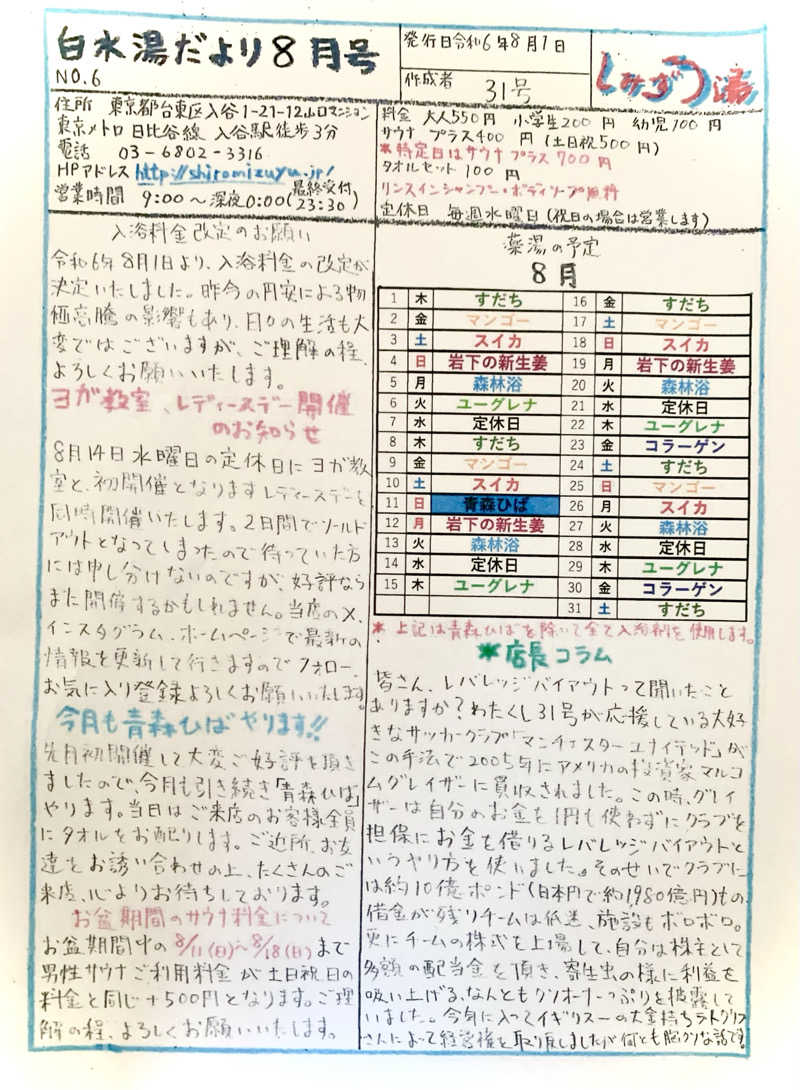 白水湯だより8月号
NO.6
発行日令和6年8月1日
作成者 31号
しみずゆ湯
住所 東京都台東区入谷1-21-12山口マンション
東京メトロ日比谷線 入谷駅徒歩3分
電話 03-6802-3316
HPアドレス http://shiromizuyu.jp/
営業時間 9:00〜深夜0:00(最終受付23:30)
料金 大人550円 小学生200円 幼児100円
サウナ プラス400円 (土日祝500円)
*特定日はサウナプラス700円
タオルセット 100円
リンスインシャンプー・ボディソープ無料
定休日 毎週水曜日(祝日の場合は営業します)
入浴料金改定のお願い
令和6年8月1日より、入浴料金の改定が
決定いたしました。昨今の円安による物
価高騰の影響もあり、日々の生活も大
変ではございますが、ご理解の程、
よろしくお願いいたします。
ヨガ教室、レディースデー開催
のお知らせ
8月14日水曜日の定休日にヨガ教
室と、初開催となりますレディースデーを
同時開催いたします。2日間でソールド
アウトとなってしまったので待っていた方
には申し分けないのですが、好評なら
また開催するかもしれません。当店のX、
インスタグラム、ホームページで最新の
情報を更新して行きますのでフォロー、
お気に入り登録よろしくお願いいたします。
今月も青森ひばやります!!
先月初開催して大変ご好評を頂き
ましたので、今月も引き続き「青森ひば」
やります。当日はご来店のお客様全員
にタオルをお配りします。ご近所、お友
達とお誘い合わせの上、たくさんのご
来店、心よりお待ちしております。
お盆期間のサウナ料金について
お盆期間中の8/11(日)〜8/18(日)まで
男性サウナご利用料金が土日祝日の
料金と同じ+500円となります。ご理
解の程、よろしくお願いいたします。
薬湯の予定
8月
1 木 すだち 16 金 すだち
2 金 マンゴー 17 土 マンゴー
3 土 スイカ 18 日 スイカ
4 日 岩下の新生姜 19 月 岩下の新生姜
5 月 森林浴 20 火 森林浴
6 火 ユーグレナ 21 水 定休日
7 水 定休日 22 木 ユーグレナ
8 木 すだち 23 金 コラーゲン
9 金 マンゴー 24 土 すだち
10 土 スイカ 25 日 マンゴー
11 日 青森ひば 26 月 スイカ
12 月 岩下の新生姜 27 火 森林浴
13 火 森林浴 28 水 定休日
14 水 定休日 29 木 ユーグレナ
15 木 ユーグレナ 30 金 コラーゲン
31 土 すだち
*上記は青森ひばを除いて全て入浴剤を使用します。
*店長コラム
皆さん、レバレッジバイアウトって聞いたこと
ありますか?わたくし31号が応援している大好
きなサッカークラブ「マンチェスターユナイテッド」が
この手法で2005年にアメリカの投資家マルコ
ムグレイザーに買収されました。この時、グレイ
ザーは自分のお金を1円も使わずにクラブを
担保にお金を借りるレバレッジバイアウトと
いうやり方を使いました。そのせいでクラブに
は約10億ポンド(日本円で約1980億円)もの
借金が残りチームは低迷、施設もボロボロ。
更にチームの株式を上場して、自分は株主として
多額の配当金を頂き、寄生虫の様に利益を
吸い上げる、なんともクソオーナーっぷりを披露して
いました。今年に入ってイギリスーの大金持ちラトクリフ
さんによって経営権を取り戻しましたが何とも胸クソな話です。